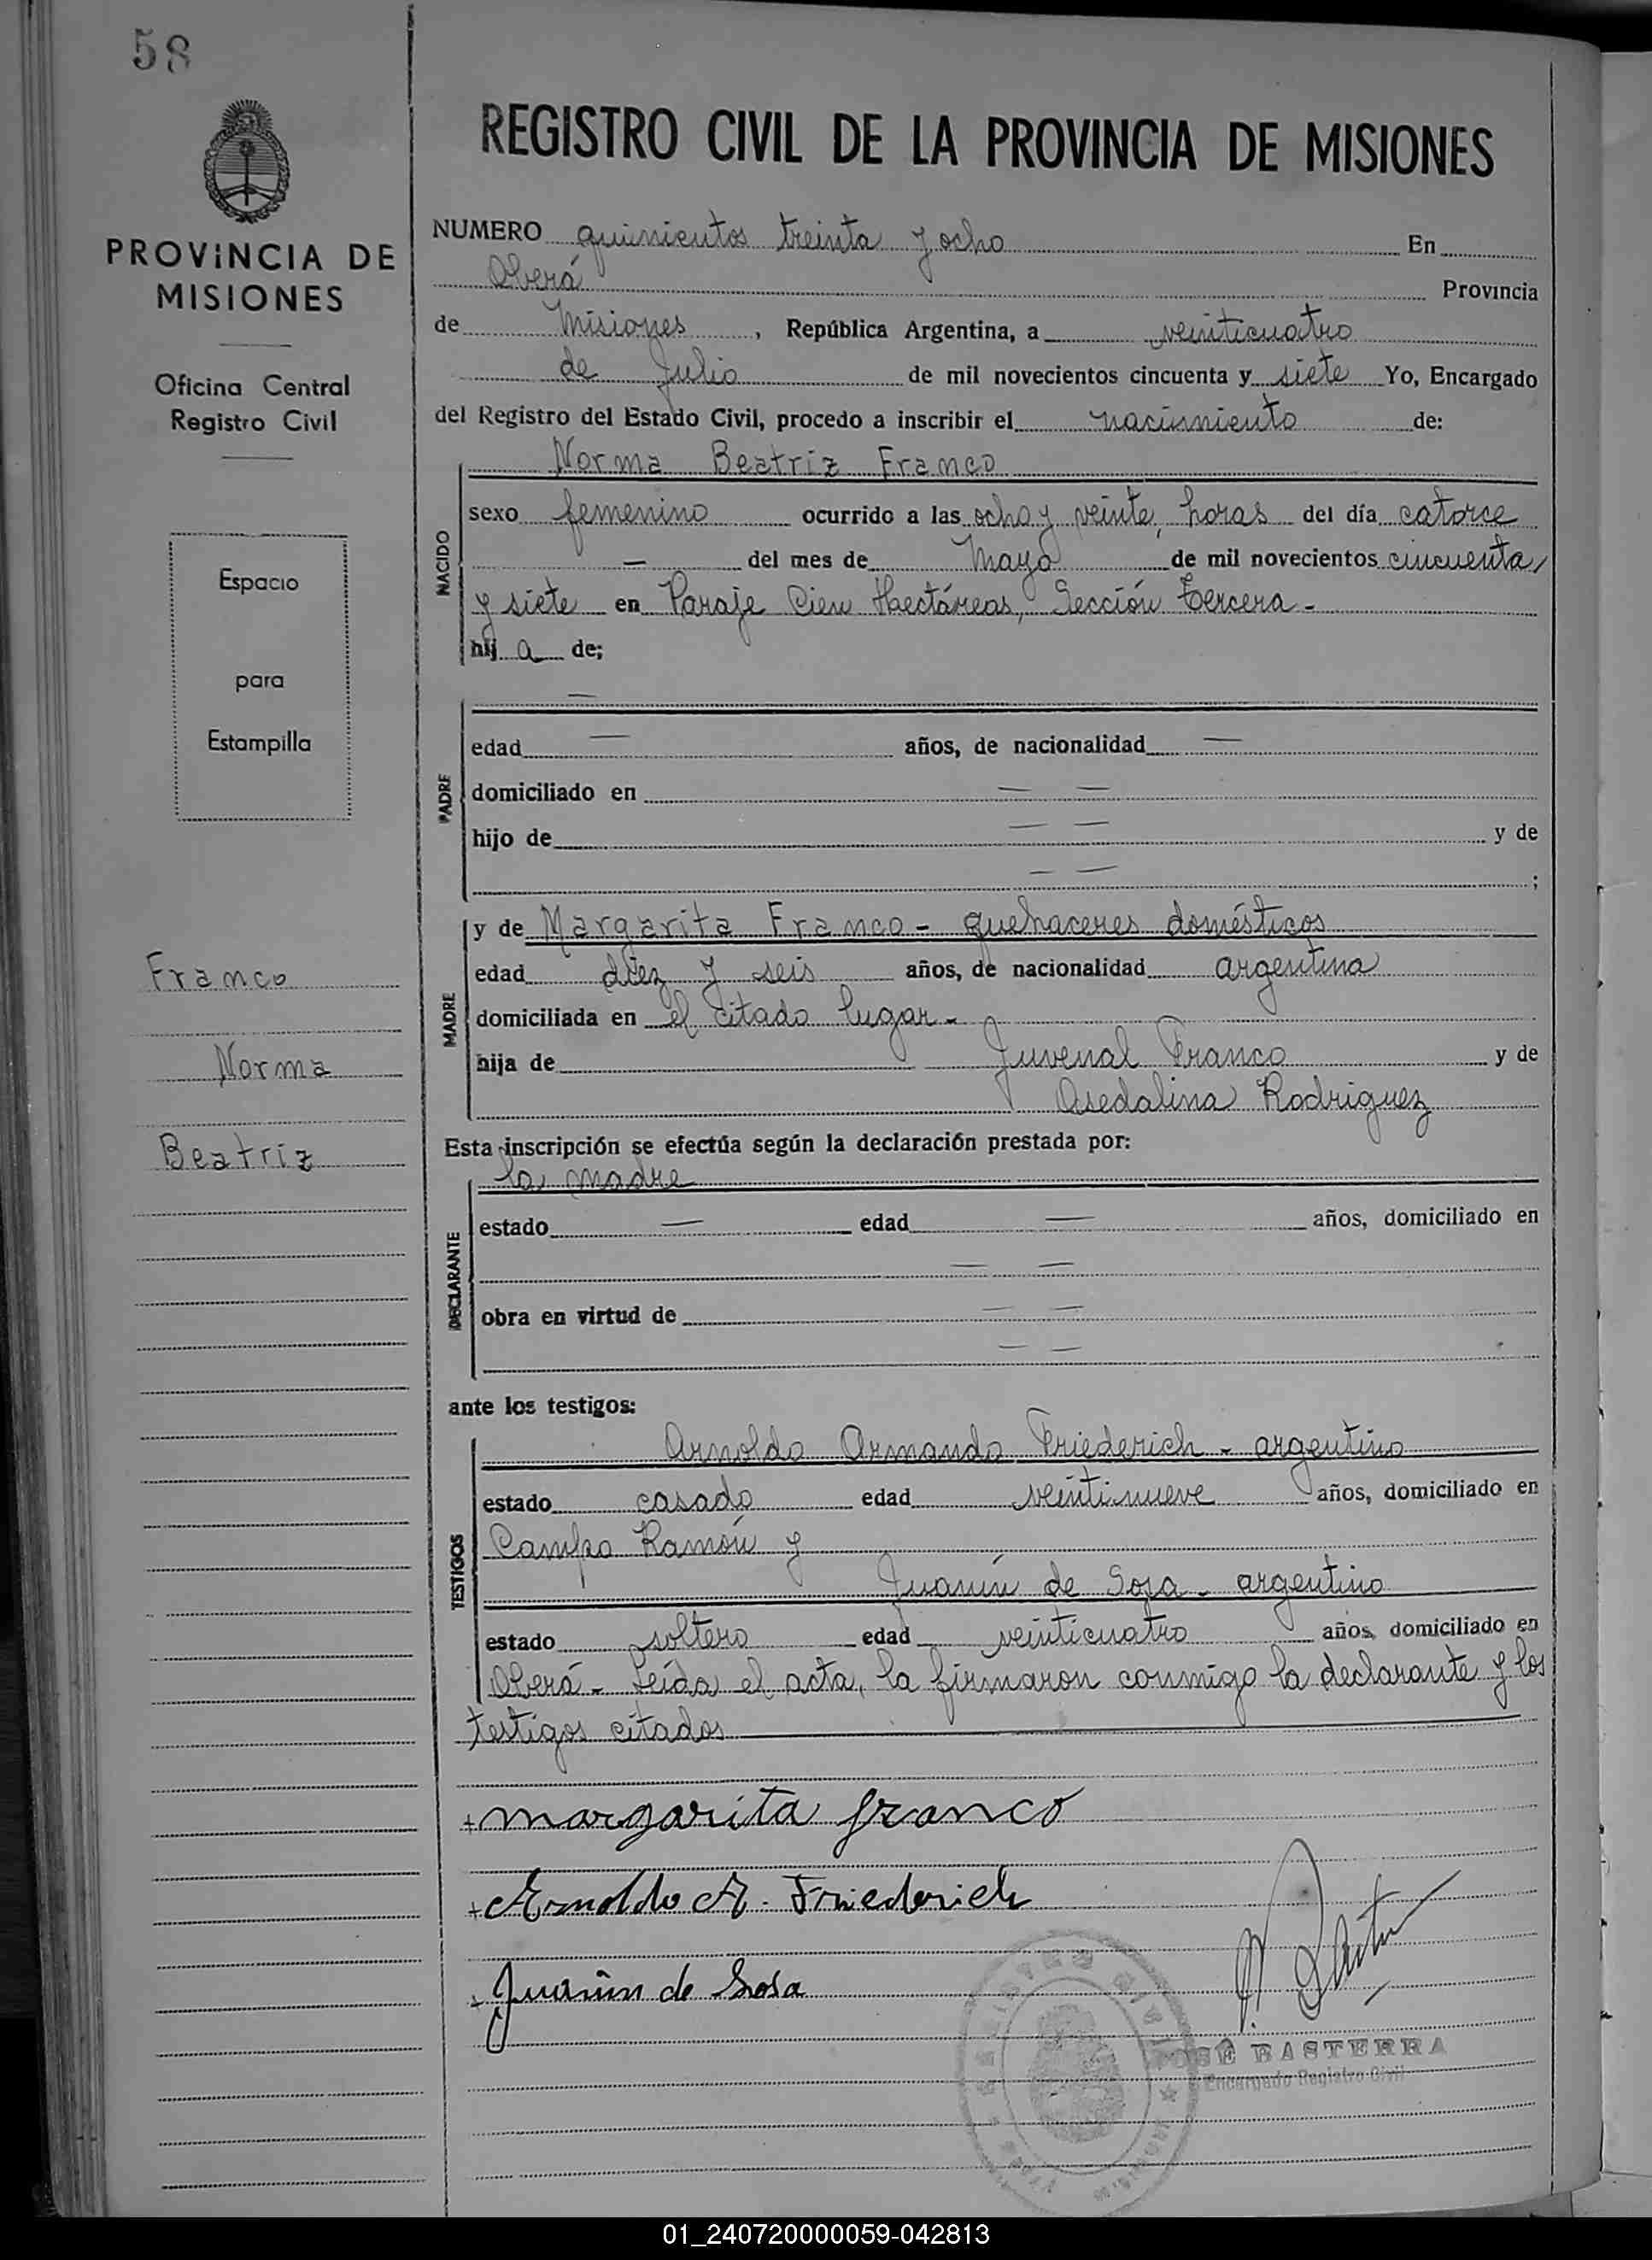 58
REGISTRO CIVIL DE LA PROVINCIA DE MISIONES
PROVINCIA DE
MISIONES
Oficina Central
Registro Civil
Espacio
para
Estampilla
Franco
Norma
Beatriz
NUMERO quinientos treinta y ocho En
Oberá Provincia
de Misiones, República Argentina, a veinticuatro
de Julio de mil novecientos cincuenta y siete Yo, Encargado
del Registro del Estado Civil, procedo a inscribir el nacimiento de:
Norma Beatriz Franco
NACIDO
sexo femenino ocurrido a las ocho y veinte, horas del día catorce
— del mes de Mayo de mil novecientos cincuenta
y siete en Paraje Cien Hectáreas, Sección tercera -
hij a de;
—
PADRE
edad — años, de nacionalidad —
domiciliado en — —
hijo de — — y de
— — ;
MADRE
y de Margarita Franco - quehaceres domésticos
edad diez y seis años, de nacionalidad argentina
domiciliada en el citado lugar -
hija de Juvenal Franco y de
Asedalina Rodriguez
Esta inscripción se efectúa según la declaración prestada por:
la madre
DECLARANTE
estado — edad — años, domiciliado en
— —
obra en virtud de — —
— —
ante los testigos:
TESTIGOS
Arnoldo Armando Friederich - argentino
estado casado edad veintinueve años, domiciliado en
Campo Ramón y
Juanín de Sosa - argentino
estado soltero edad veinticuatro años, domiciliado en
Oberá - Leída el acta, la firmaron conmigo la declarante y los
testigos citados
+ margarita franco
+ Arnoldo A. Friederich
+ Juanin de Sosa
REGISTRO CIVIL
JOSÉ BASTERRA
Encargado Registro Civil
01_240720000059-042813